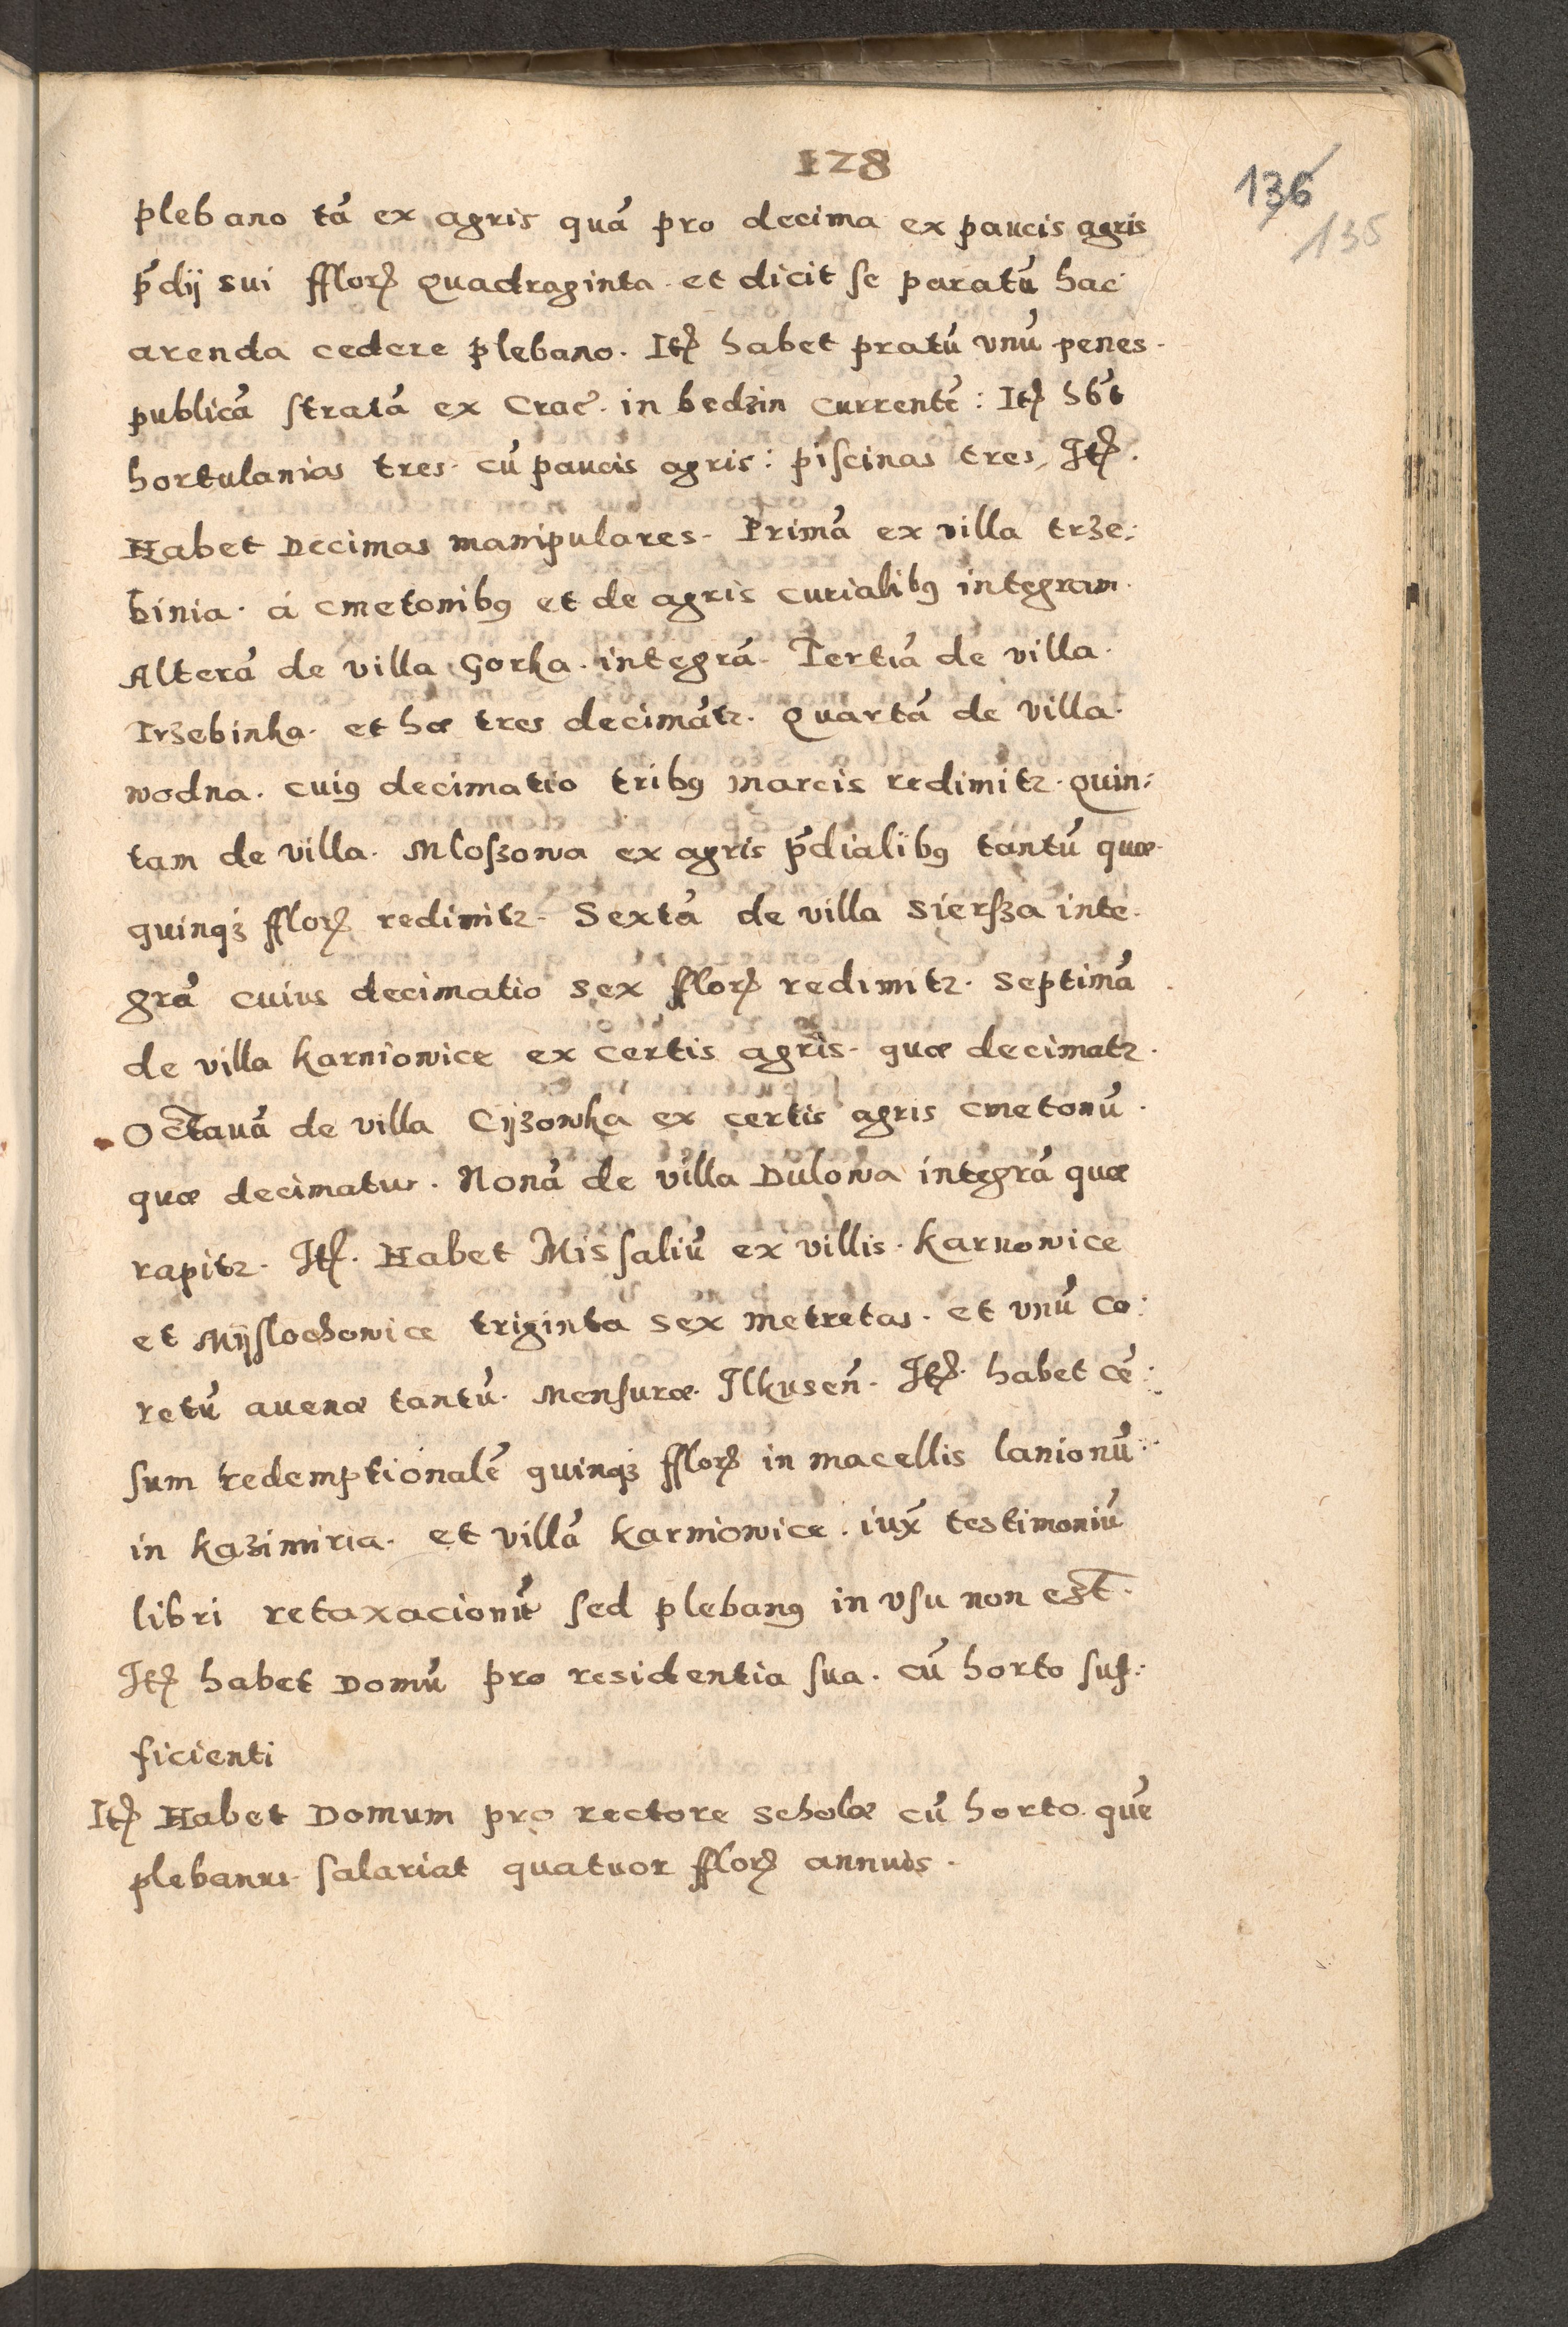 128
136
135
plebano tā ex agris quā pro decima ex paucis agris
p̄dij sui fflorꝭ Quadraginta et dicit se paratū hac
arenda cedere plebano. Itꝭ habet pratū vnū penes
publicā stratā ex Crac̄. in bedzin currentē: Itꝭ hēt
hortulanias tres cū paucis agris: piscinas tres, Itꝭ.
Habet Decimas manipulares. Primā ex villa trze:
binia. á cmetonibꝰ et de agris curialibꝰ integram.
Alterā de villa Gorka. integrā. Tertiā de villa.
Trzebinka. et hæ tres decimātꝛ. Quartā de villa.
wodna. cuiꝰ decimatio tribꝰ marcis redimitꝛ. Quin:
tam de villa. Mloszowa ex agris p̄dialibꝰ tantū quæ
quinqꝫ fflorꝭ redimitꝛ. Sextā de villa Siersza inte.
grā cuius decimatio sex fflorꝭ redimitꝛ. Septimā
de villa karniowice ex certis agris. quæ decimatꝛ.
Octauā de villa Cijzowka ex certis agris cmetonū.
quæ decimatur. Nonā de villa Dulowa integrā quæ
rapitꝛ. Itꝭ. Habet Missaliū ex villis. karnowice
et Mijslochowice triginta sex metretas. et vnū co:
retū auenæ tantū. Mensuræ. Ilkuseñ. Itꝭ. habet cē:
sum redemptionalē quinqꝫ fflorꝭ in macellis lanionū
in kazimiria. et villā karniowice. iux̄ testimoniū
libri retaxacionū sed plebanꝰ in vsu non est.
Itꝭ habet Domū pro residentia sua. cū horto suf:
ficienti
Itꝭ Habet Domum pro rectore scholæ cū horto. quē
plebanus. salariat quatuor fflorꝭ annuis.